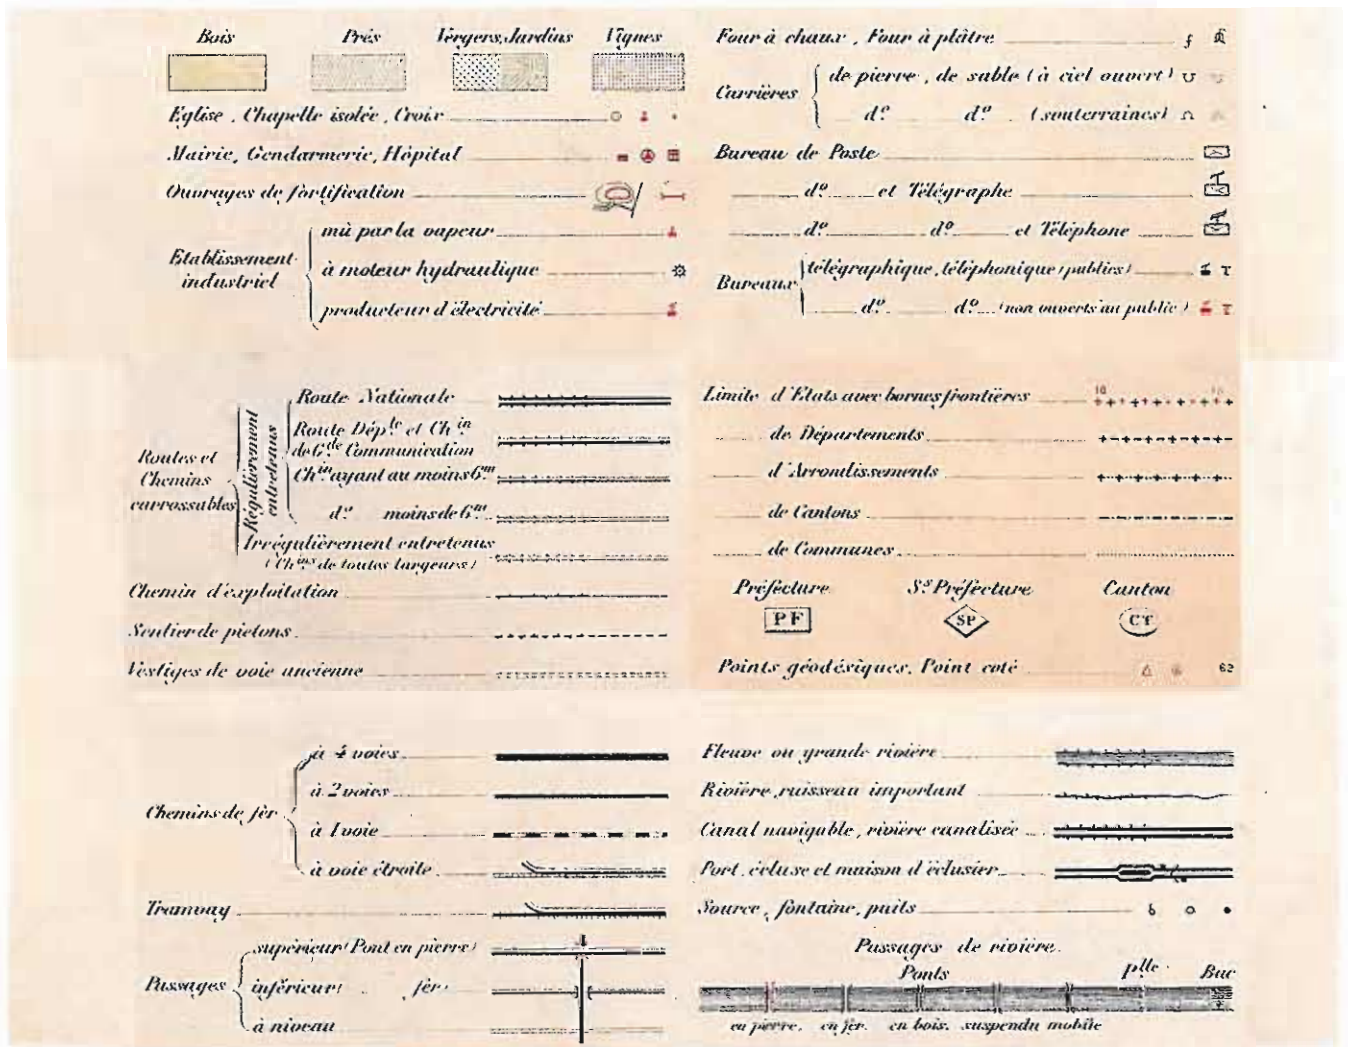 Bois Prés Vergers, Jardins Vignes
Eglise, Chapelle isolée, Croix
Mairie, Gendarmerie, Hôpital
Ouvrages de fortification
Etablissement industriel
mû par la vapeur
à moteur hydraulique
producteur d'électricité
Four à chaux, Four à plâtre
Carrières
de pierre, de sable (à ciel ouvert)
d.° d.° (souterraines)
Bureau de Poste
d.° et Télégraphe
d.° d.° et Téléphone
Bureaux
télégraphique, téléphonique (publics)
d.° d.° (non ouverts au public)
Routes et
Chemins
carrossables
Régulièrement
entretenus
Route Nationale
Route Dép.le et Ch.in
de G.de Communication
Ch.in ayant au moins 6.m
d.° moins de 6.m
Irrégulièrement entretenus
(Ch.ins de toutes largeurs)
Chemin d'exploitation
Sentier de piétons
Vestiges de voie ancienne
Limite d'Etats avec bornes frontières
10
de Départements
d'Arrondissements
de Cantons
de Communes
Préfecture S.s Préfecture Canton
PF SP CT
Points géodésiques, Point coté 62
Chemins de fer
à 4 voies
à 2 voies
à 1 voie
à voie étroite
Tramway
Passages
supérieur (Pont en pierre)
inférieur ( fer )
à niveau
Fleuve ou grande rivière
Rivière, ruisseau important
Canal navigable, rivière canalisée
Port, écluse et maison d'éclusier
Source, fontaine, puits
Passages de rivière
Ponts p.lle Bac
en pierre, en fer, en bois, suspendu mobile